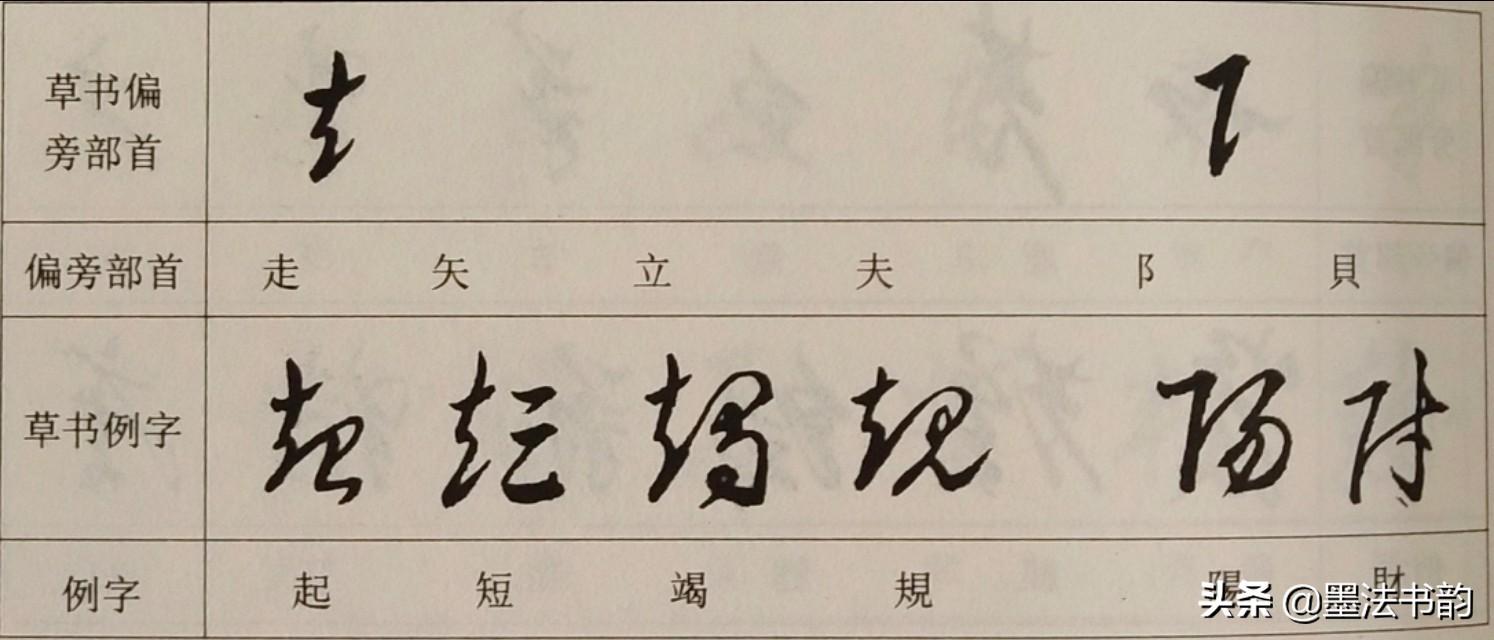 草书偏
旁部首
偏旁部首 走 矢 立 夫 阝 貝
草书例字 起 短 竭 規 陽 財
例字 起 短 竭 規 陽 財
头条 @墨法书韵